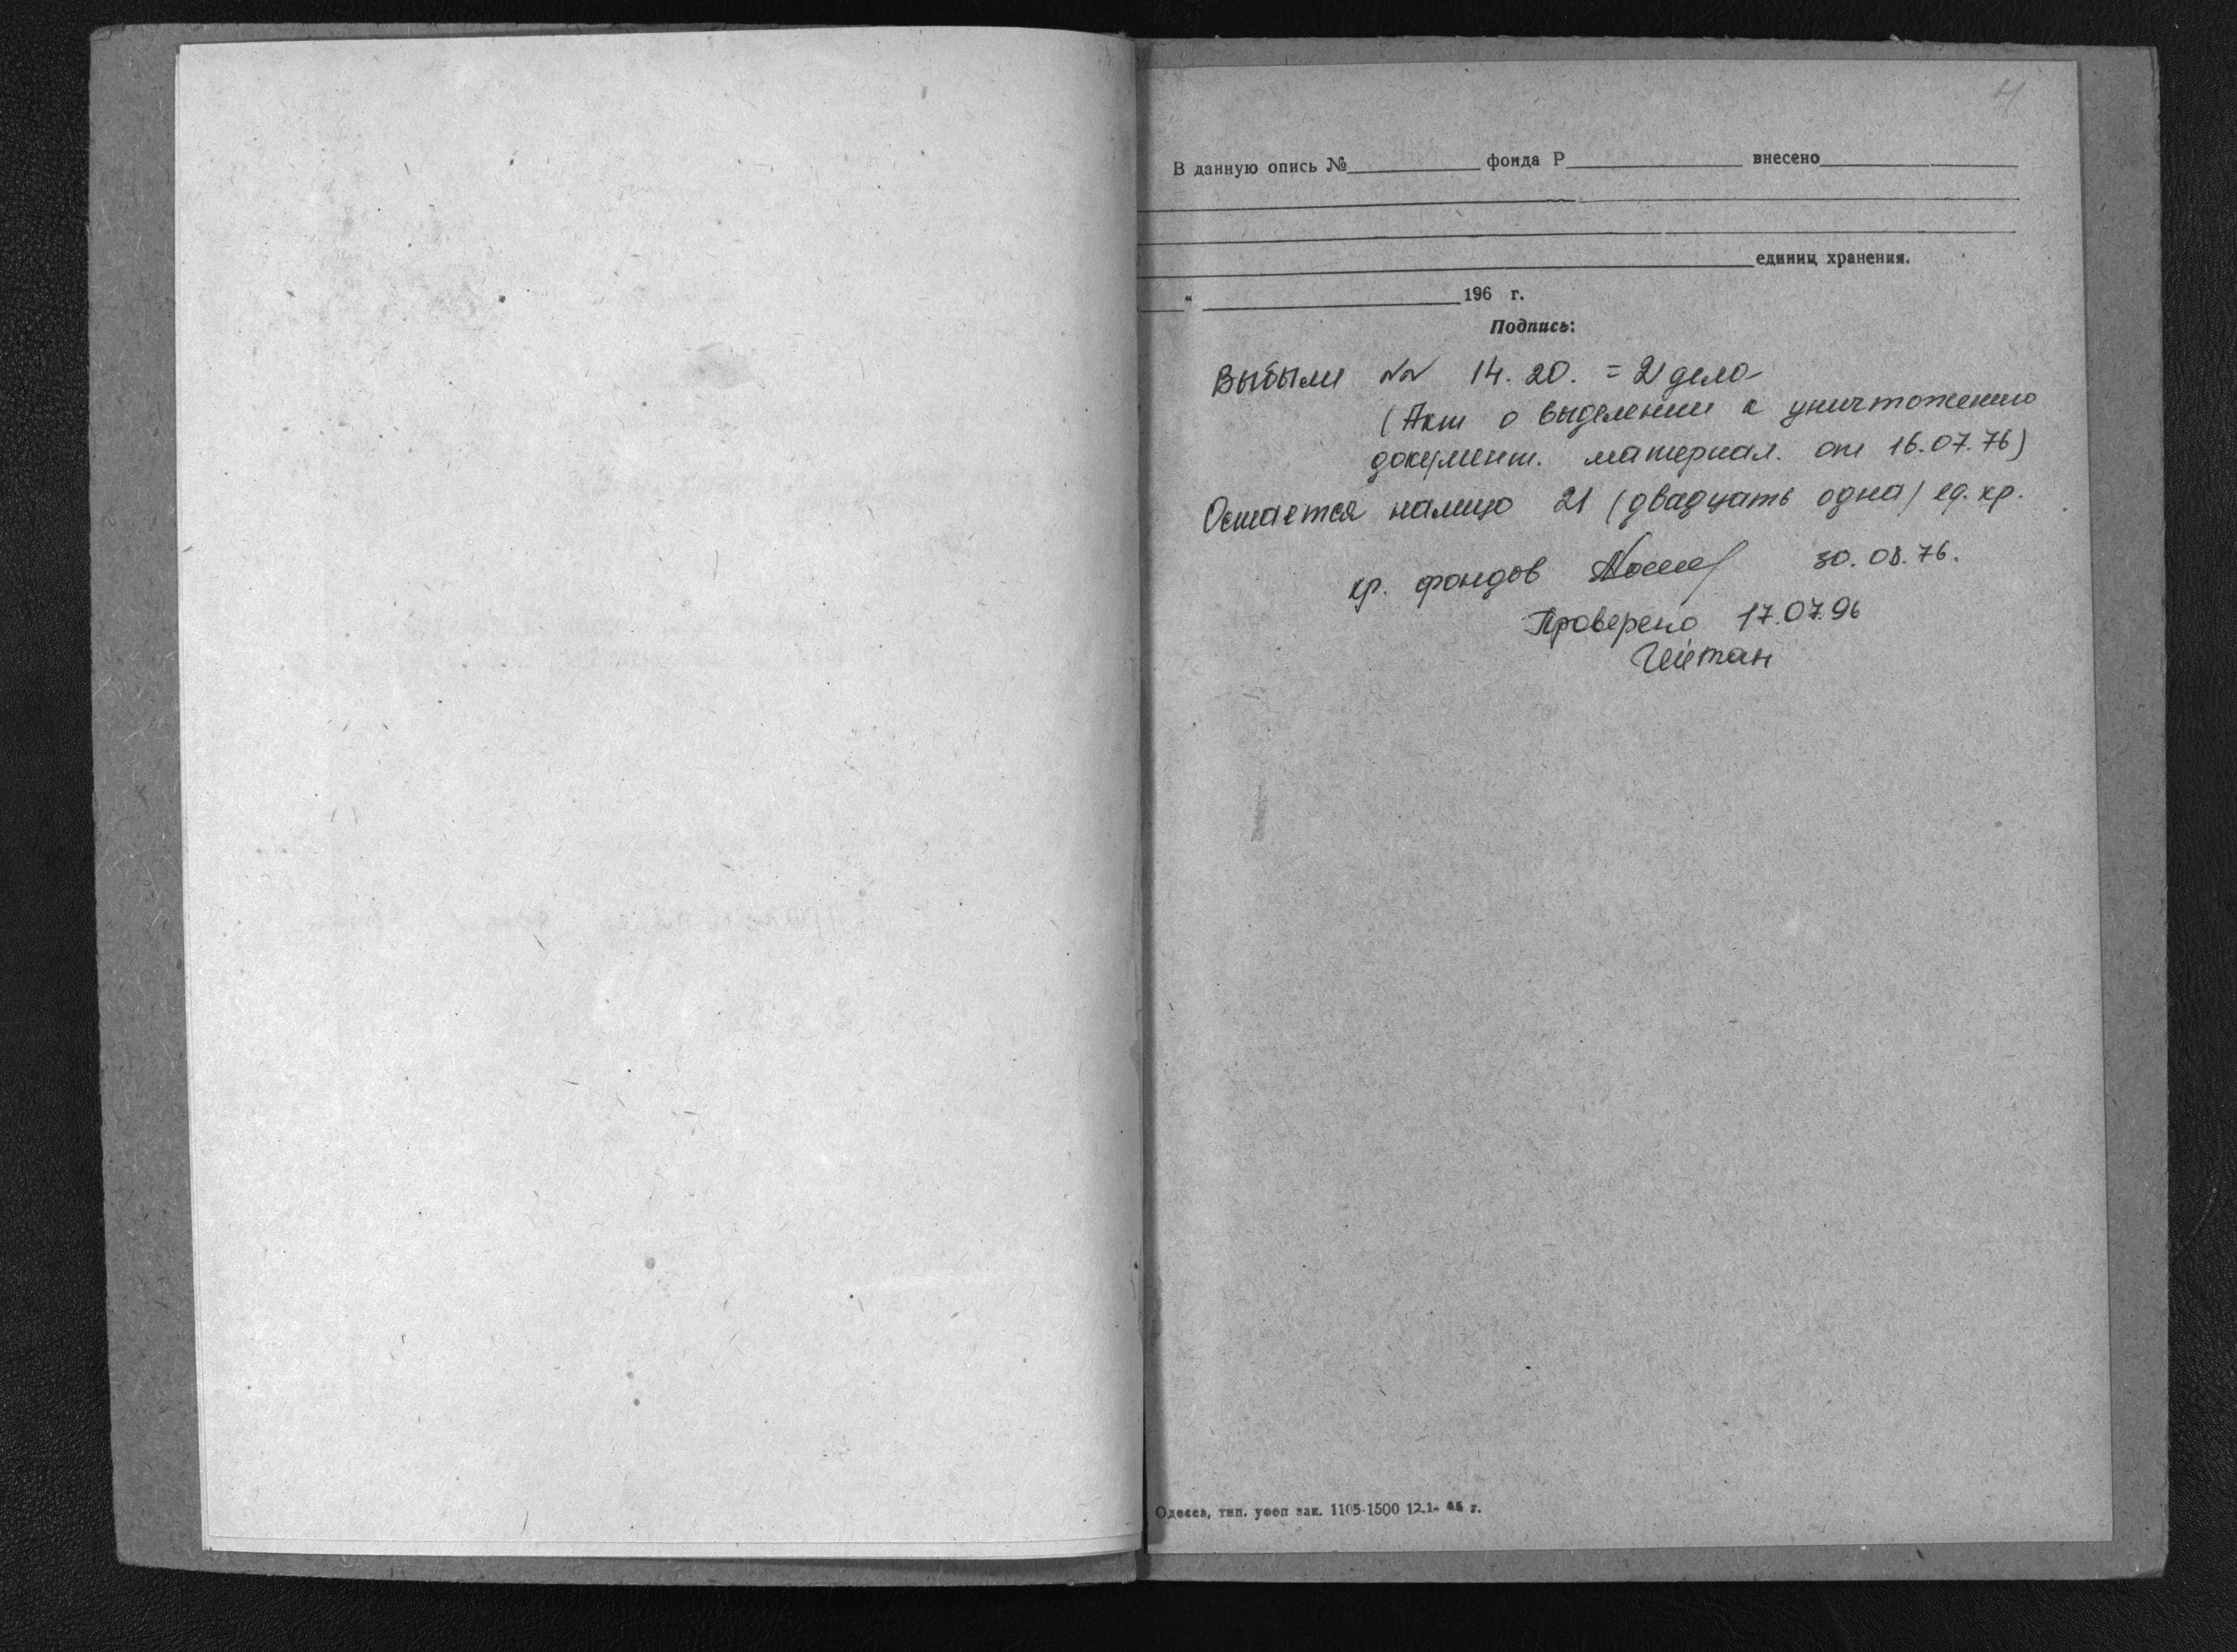 4
В данную опись № фонда Р внесено
единиц хранения.
" 196 г.
Подпись:
Выбыли №№ 14. 20. = 2 дела
(Акт о выделении к уничтожению
документ. материал. от 16.07.76)
Остается налицо 21 (двадцать одна) ед. хр.
хр. фондов 30.08.76.
Проверено 17.07.96
Одесса, тип. зак. 1105-1500 12.1- г.